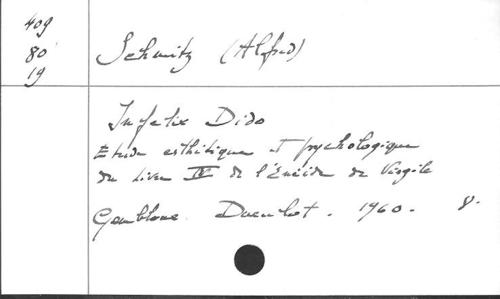 409
80
19
Schmitz (Alfred)
Infelix Dido
Etude esthétique et psychologique
du Livre IV de l'Énéide de Virgile
Gembloux. Duculot. 1960. 8.